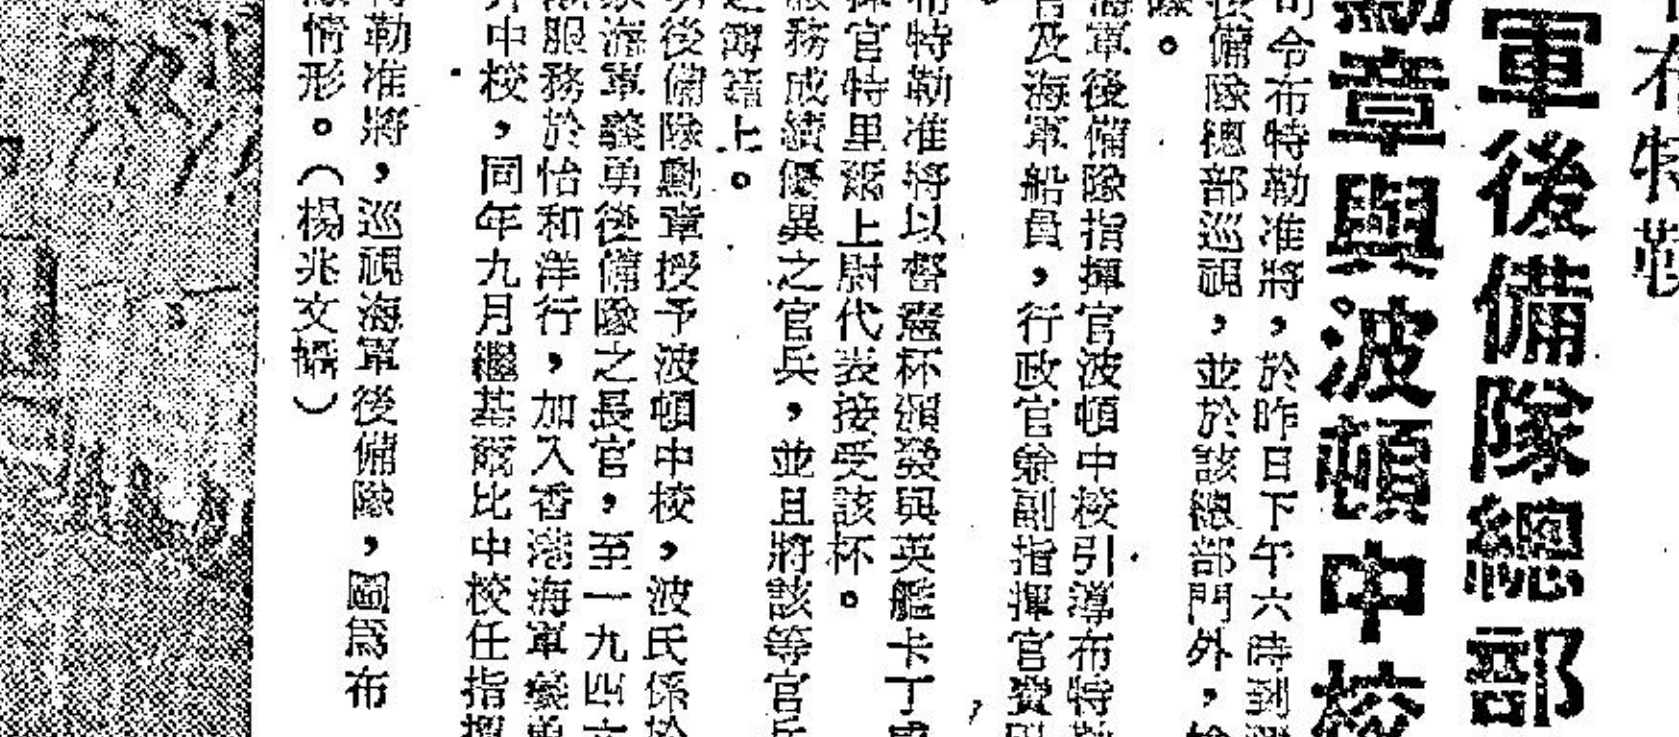 布特勒
軍後備隊總部
勳章與波頓中校
司令布特勒准將，於昨日下午六時到
後備隊總部巡視，並於該總部門外，
隊。
海軍後備隊指揮官波頓中校引導布特勒
官及海軍船員，行政官兼副指揮官費
布特勒准將以督憲杯頒發與英艦卡丁
揮官特里爾上尉代表接受該杯。
服務成績優異之官兵，並且將該等官兵
之簿籍上。
後備隊勳章授予波頓中校，波氏係於
海軍義勇後備隊之長官，至一九四六
服務於怡和洋行，加入香港海軍義勇
升中校，同年九月繼基爾比中校任指揮
特勒准將，巡視海軍後備隊，圖爲布
隊情形。（楊兆文攝）